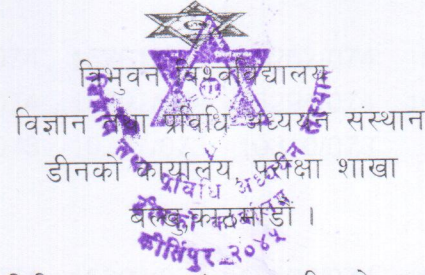 त्रिभुवन विश्वविद्यालय
विज्ञान तथा प्रविधि अध्ययन संस्थान
डीनको कार्यालय, परीक्षा शाखा
बल्खु काठमाडौं ।
कीर्तिपुर २०४५